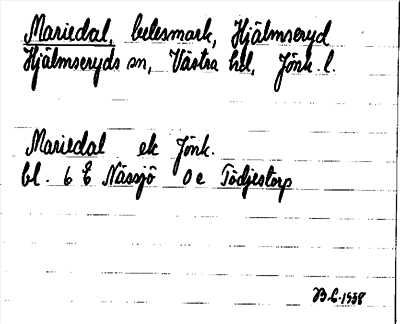 Mariedal, belesmark, Hjälmseryd
Hjälmseryds sn, Västra hd, Jönk. l.
Mariedal ek Jönk.
bl. 6 E Nässjö 0 e Tödjestorp
B.C. 1938